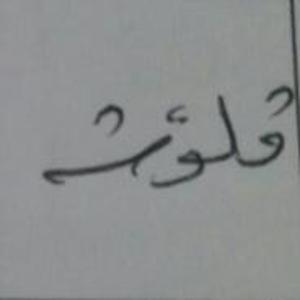 قلوتش